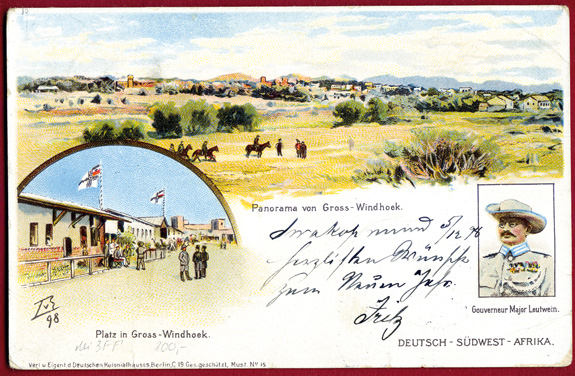 Panorama von Gross-Windhoek.
Swakopmund 5/12 98
Herzlichen Wünsche
zum Neuen Jahr.
Fritz
98
Platz in Gross-Windhoek.
100,-
Gouverneur Major Leutwein.
DEUTSCH - SÜDWEST - AFRIKA.
Verl u Eigent d Deutschen Kolonialhauses Berlin, C 19 Ges. geschützt, Must. Nº 15